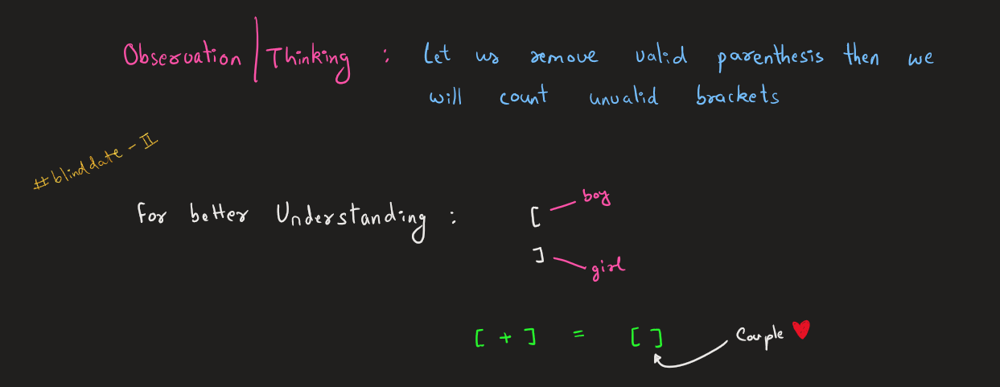 Observation | Thinking : Let us remove valid parenthesis then we
will count unvalid brackets
#blinddate - II
For better Understanding :
[ boy
] girl
[ + ] = [ ] Couple ❤